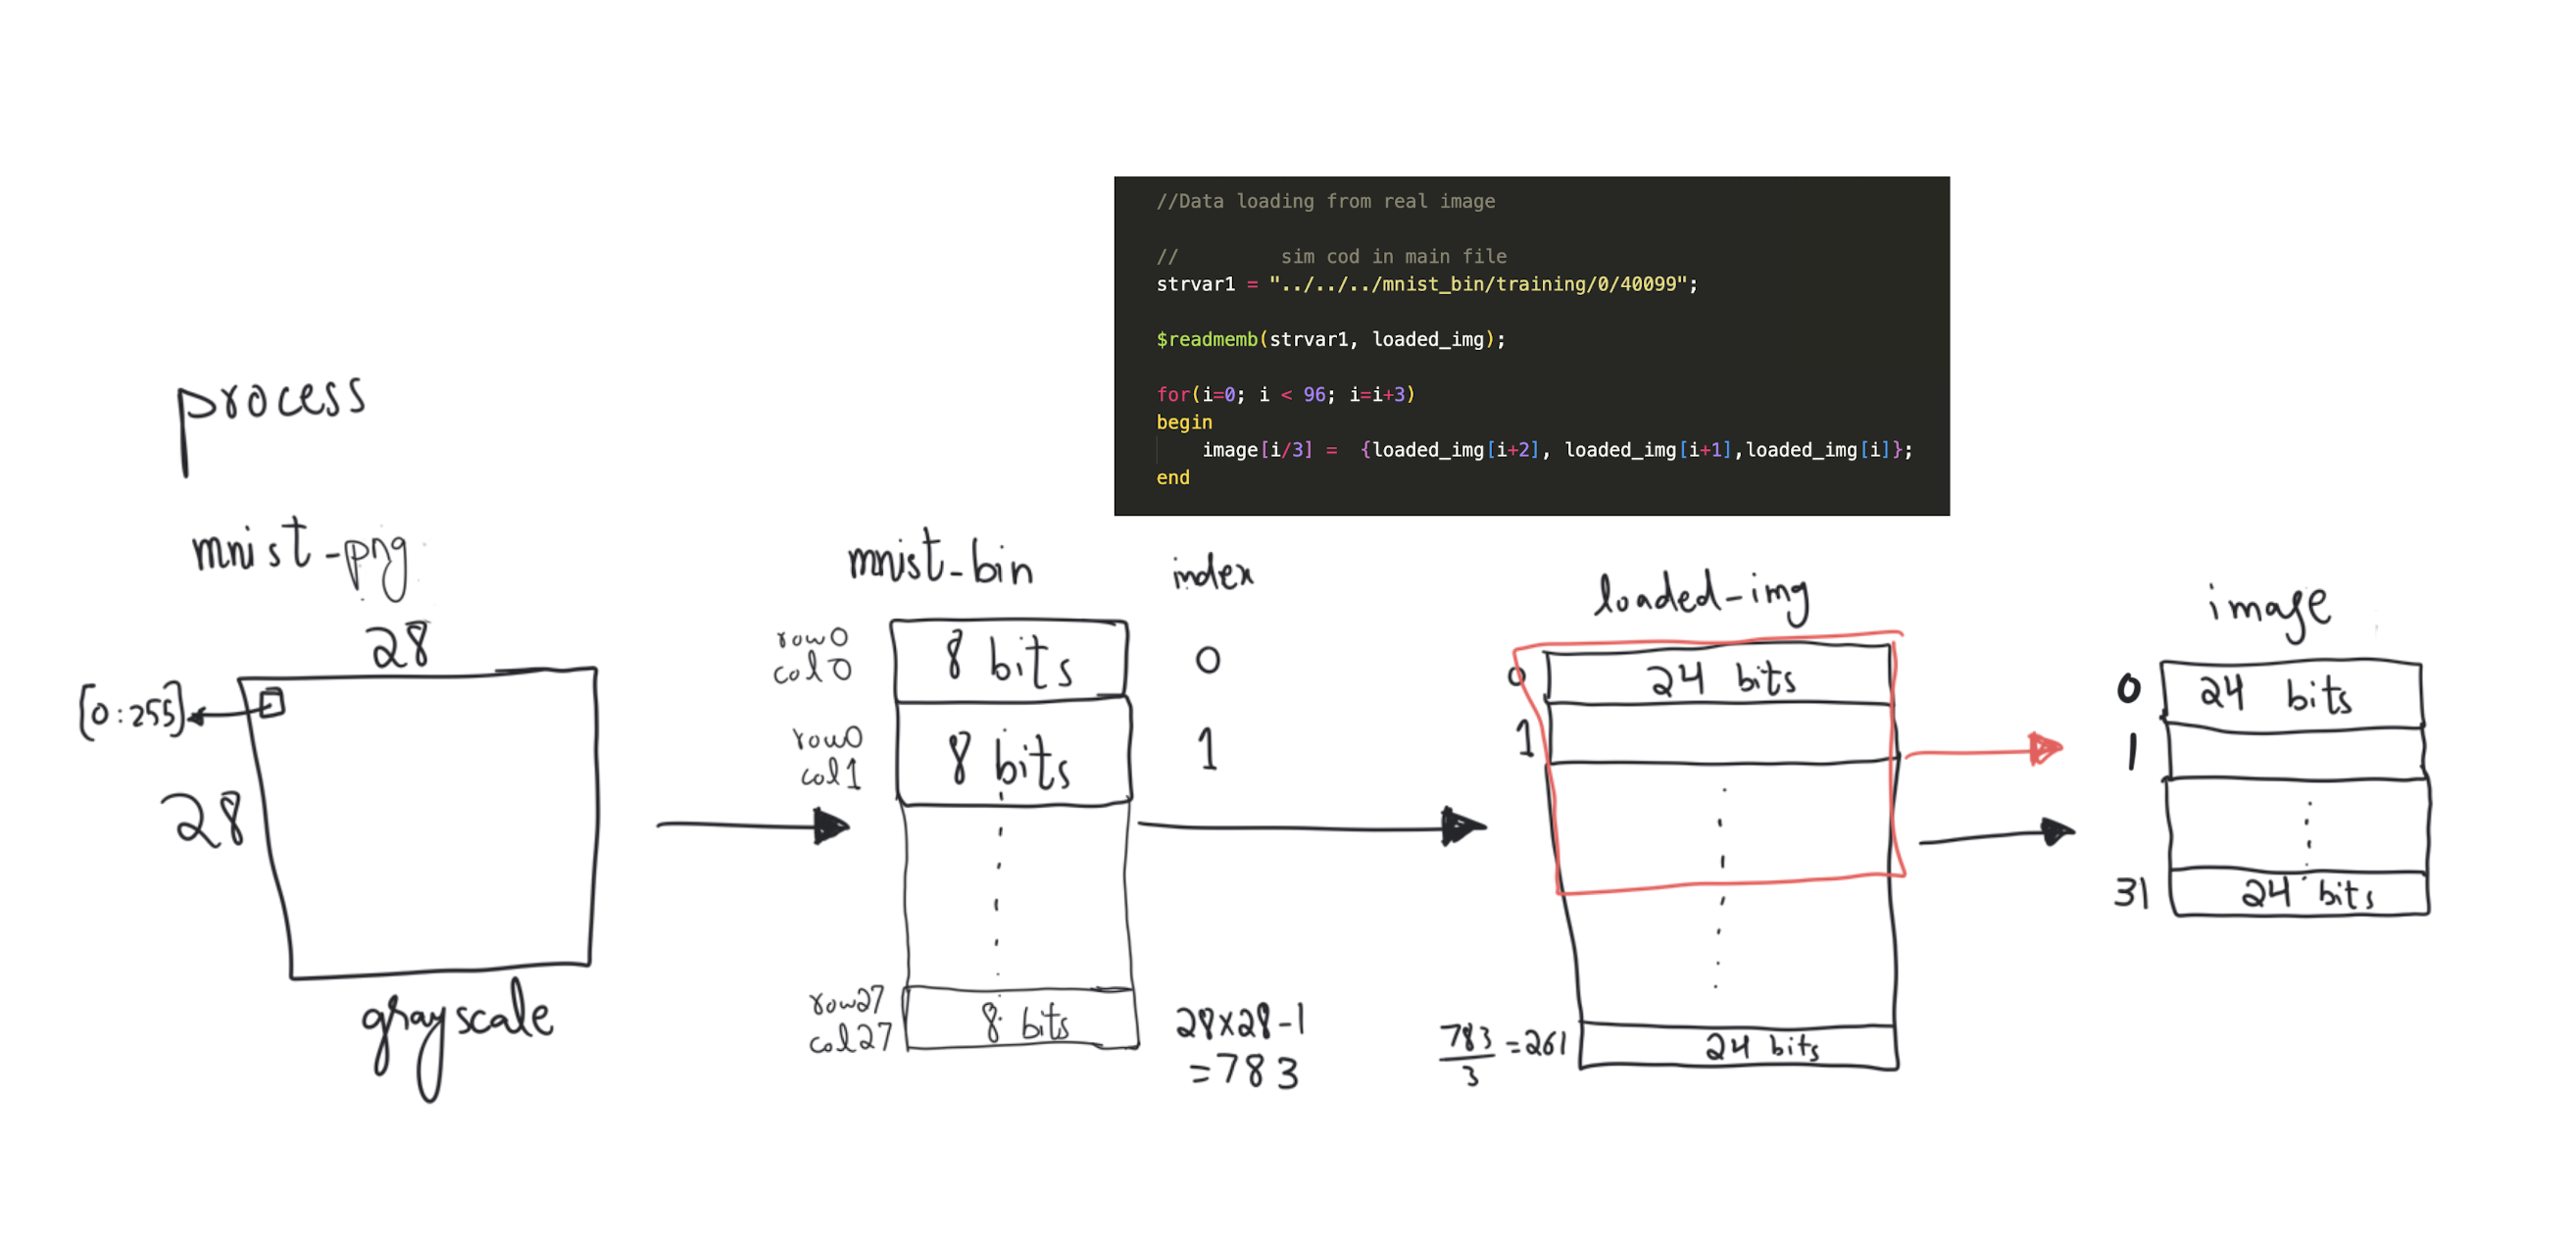 //Data loading from real image
//         sim cod in main file
strvar1 = "../../../mnist_bin/training/0/40099";
$readmemb(strvar1, loaded_img);
for(i=0; i < 96; i=i+3)
begin
    image[i/3] =  {loaded_img[i+2], loaded_img[i+1],loaded_img[i]};
end
process
mnist-png
28
[0:255]
28
grayscale
mnist-bin
index
row0
col0
8 bits
0
row0
col1
8 bits
1
row27
col27
8 bits
28x28-1
=783
loaded-img
0
24 bits
1
783
3
=261
24 bits
image
0
24 bits
1
31
24 bits